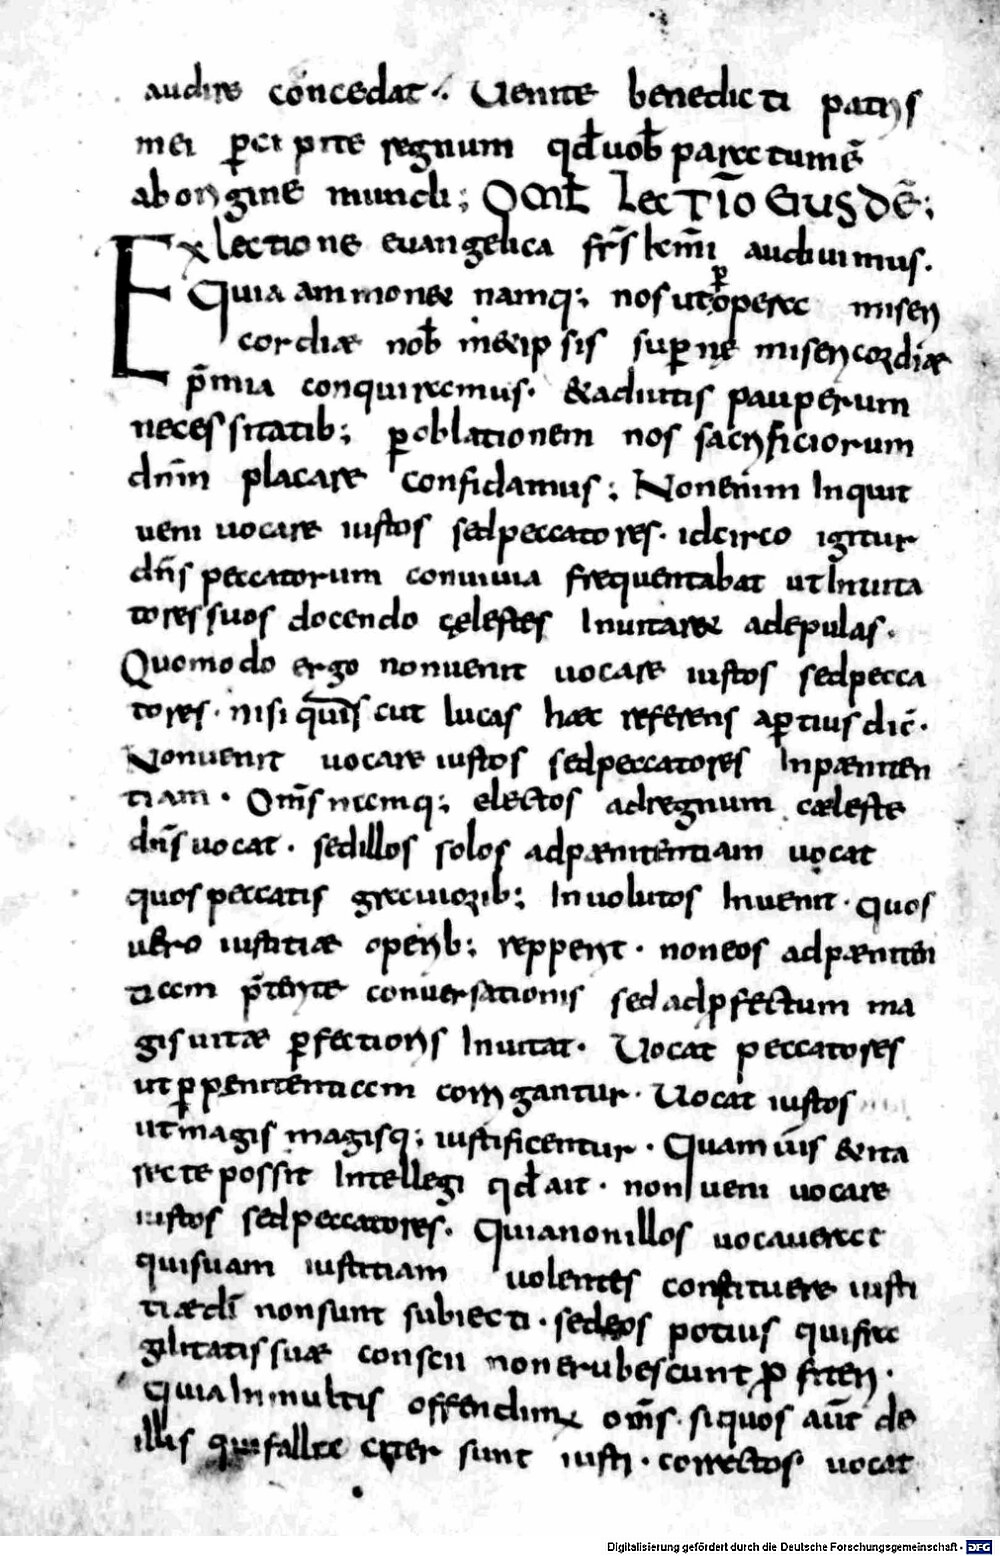 audire concedat ·,· Uenite benedicti patris
mei ꝑcipite regnum qđ uob̄ paratum ē
ab origine mundi ; OMł Lectio eiusdē ;
Ex lectione euangelica fr̄s km̄i audiuimus .
Quia ammonet namq; nos ut ꝑ opera miseri
cordiæ nob̄ inpsis supernę misericordiæ
p̄mia conquiramus . & aditis pauperum
necessitatib; ꝑ oblationem nos sacrificiorum
dn̄m placare confidamus ; Non enim inquit
ueni uocare iustos sed peccatores . idcirco igitur
dn̄s peccatorum conuiuia frequentabat ut inuita
tores suos docendo çelestes inuitaret ad epulas .
Quomodo ergo non uenit uocare iustos sed pecca
tores . nisi quīs cut lucas hæc referens aꝑtius dic̄ .
Non uenit uocare iustos sed peccatores in pæniten
tiam . Om̄s namq; electos ad regnum cæleste
dn̄s uocat . sed illos solos ad pænitentiam uocat
quos peccatis grauiorib; inuolutos inuenit . quos
uero iustitiæ operib; repperit . non eos ad pæniten
tiam p̄teritæ conuersationis sed ad ꝓfectum ma
gis uitæ ꝑfectioris inuitat . Uocat peccatores
ut ꝑ penitentiam corrigantur . Uocat iustos
ut magis magisq; iustificentur . Quamuis & ita
recte possit intellegi qđ ait . non ueni uocare
iustos sed peccatores . Quia non illos uocauerat
qui suam iustitiam uolentes constituere iusti
tiæ dī non sunt subiecti . sed eos potius qui fra
gilitatis suæ conscii non erubescunt ꝓfiteri .
Quia in multis offendim; om̄s . siquos aut̄ de
illis qui fallaciter sunt iusti . correctos uocat
Digitalisierung gefördert durch die Deutsche Forschungsgemeinschaft · DFG